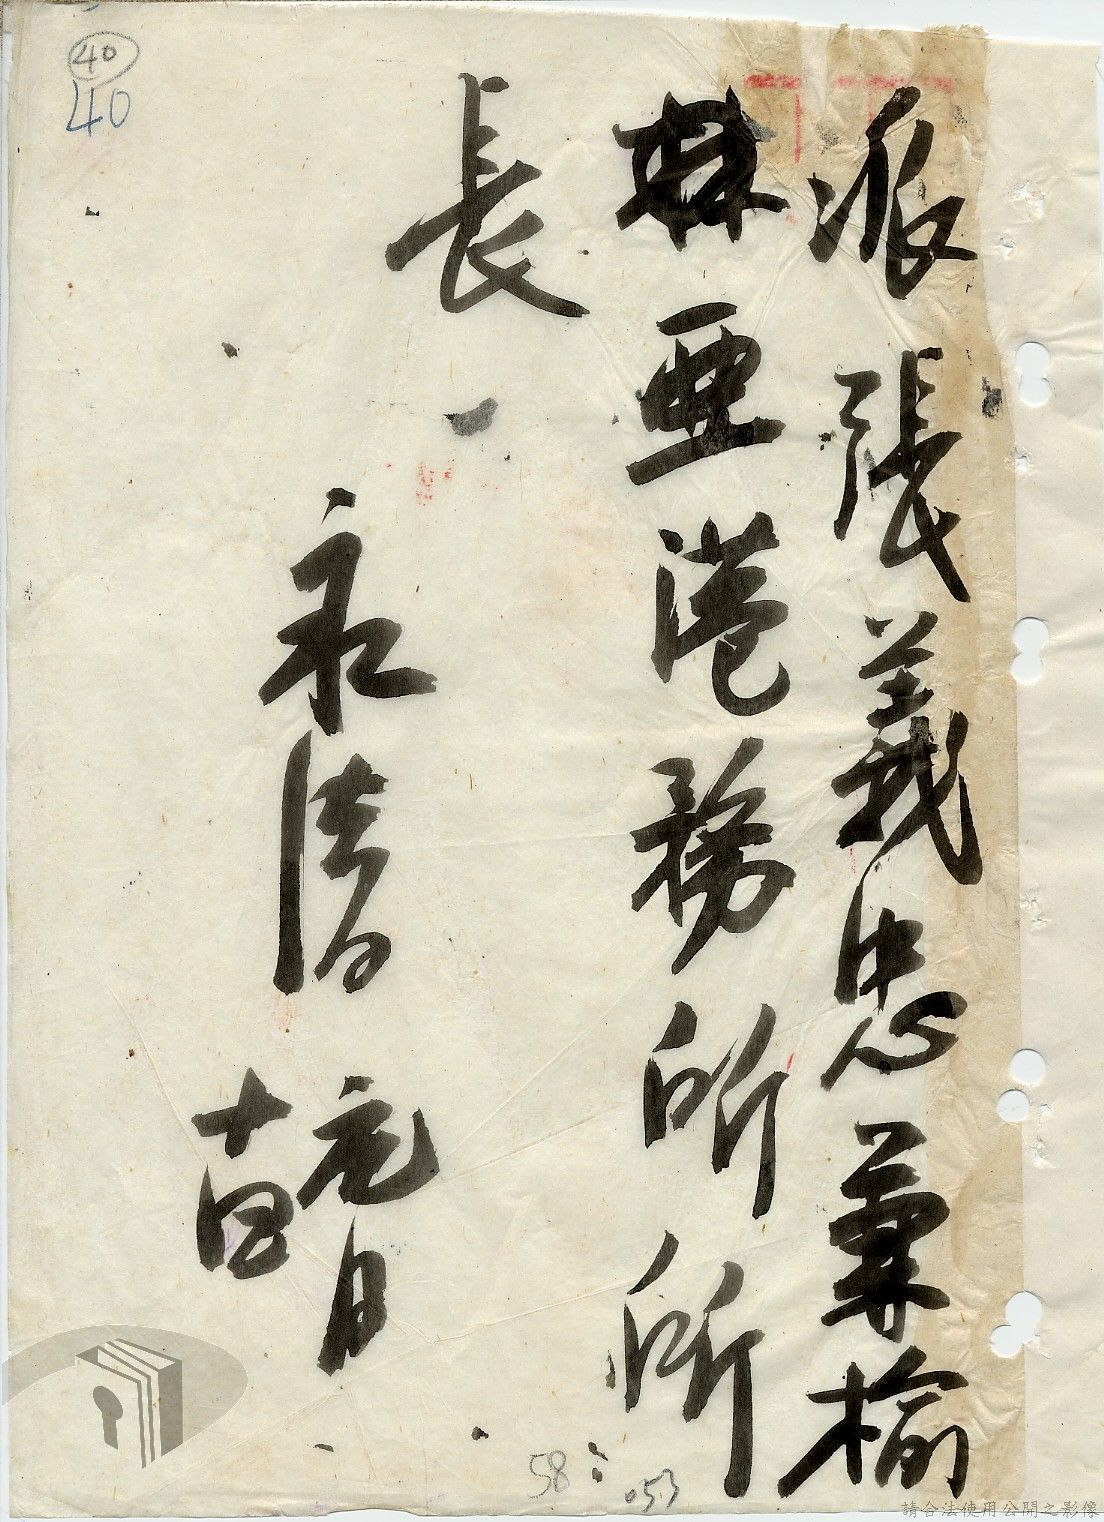 派張義忠兼榆
林亞港務所所
長
永清
元月
十四日
40
40
58
053
請合法使用公開之影像